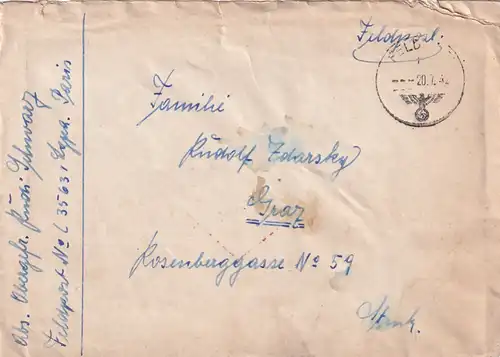 Feldpost.
FELDPOST
20.7.42
Familie
Rudolf Zdarsky
Graz
Rosenberggasse No 59
Stmk.
Abs. Obergefr. Rudi Schwarz
Feldpost No L 35631 Lgpa. Paris